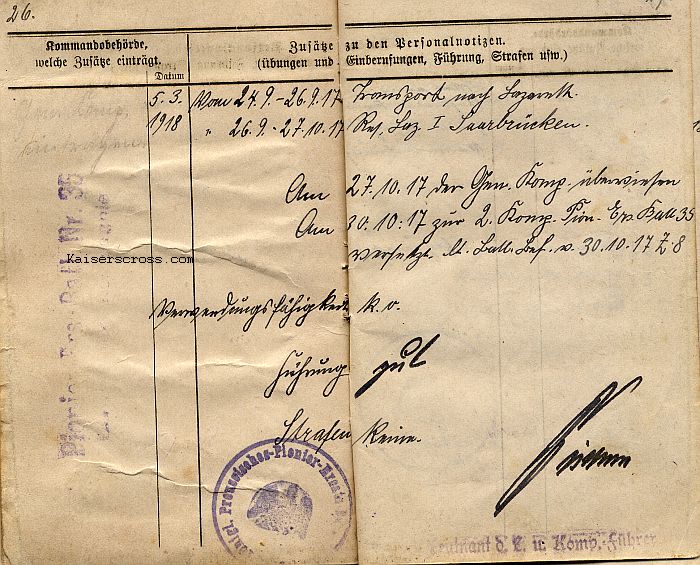 26.
Kommandobehörde,
welche Zusätze einträgt.
Datum
Zusätze zu den Personalnotizen.
(Übungen und Einberufungen, Führung, Strafen usw.)
5. 3. Vom 24.9. - 26.9.17 Transport nach Lazarett.
1918 " 26.9. - 27.10.17 Res. Laz. I Saarbrücken.
Am 27.10.17 der Gen. Komp. überwiesen
Am 30.10.17 zur 2. Komp. Pion. Ers. Batl. 35
versetzt. lt. Batl. Bef. v. 30.10.17 Z. 8
Kaiserscross.com
Verwendungsfähigkeit k. v.
Führung gut
Strafen keine.
Pionier-Ers. Batl. Nr. 35
Königl. Preussisches-Pionier-Ersatz-
Leutnant d. L. u. Komp.-Führer